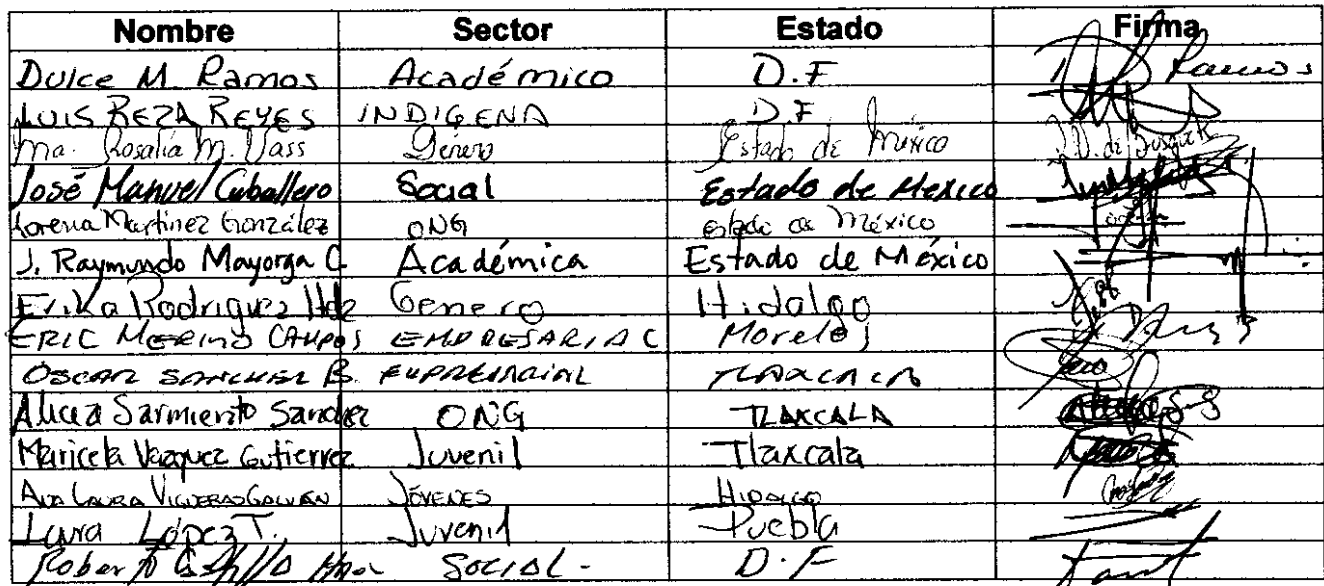 Nombre Sector Estado Firma
Dulce M. Ramos Académico D.F Ramos
LUIS REZA REYES INDIGENA D.F.
Ma. Rosalía M. Vass Género Estado de México
José Manuel Caballero Social Estado de Mexico
Lorena Martinez González ONG estado de México
J. Raymundo Mayorga C. Académica Estado de México
Erika Rodriguez Hdz Genero Hidalgo
ERIC MERINO CAMPOS EMPRESARIAL Morelos
OSCAR SANCHEZ B. EMPRESARIAL TLAXCALA
Alicia Sarmiento Sanchez ONG TLAXCALA
Maricela Vazquez Gutierrez Juvenil Tlaxcala
ANA LAURA VIGUERAS GALVÁN JÓVENES HIDALGO
Laura López T. Juvenil Puebla
Roberto SOCIAL - D.F